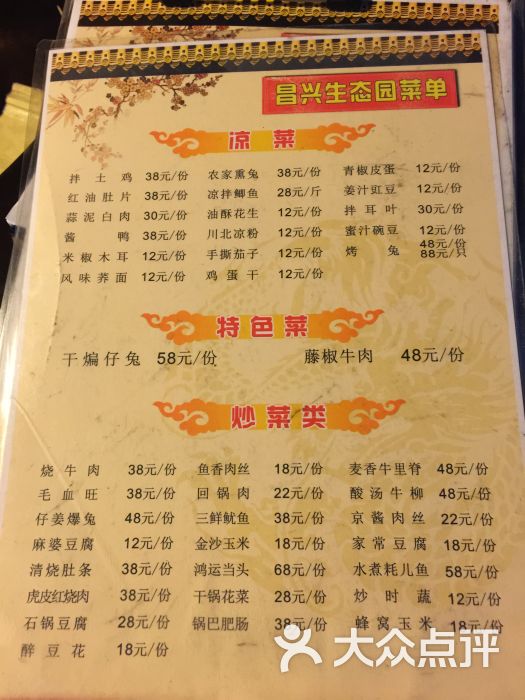 昌兴生态园菜单
凉菜
拌土鸡 38元/份 农家熏兔 38元/份 青椒皮蛋 12元/份
红油肚片 38元/份 凉拌鲫鱼 28元/斤 姜汁豇豆 12元/份
蒜泥白肉 30元/份 油酥花生 12元/份 拌耳叶 30元/份
酱鸭 38元/份 川北凉粉 12元/份 蜜汁碗豆 12元/份
米椒木耳 12元/份 手撕茄子 12元/份 烤兔 48元/份 88元/只
风味荞面 12元/份 鸡蛋干 12元/份
特色菜
干煸仔兔 58元/份 藤椒牛肉 48元/份
炒菜类
烧牛肉 38元/份 鱼香肉丝 18元/份 麦香牛里脊 48元/份
毛血旺 38元/份 回锅肉 22元/份 酸汤牛柳 48元/份
仔姜爆兔 48元/份 三鲜鱿鱼 38元/份 京酱肉丝 22元/份
麻婆豆腐 12元/份 金沙玉米 18元/份 家常豆腐 18元/份
清烧肚条 38元/份 鸿运当头 68元/份 水煮耗儿鱼 58元/份
虎皮红烧肉 38元/份 干锅花菜 28元/份 炒时蔬 12元/份
石锅豆腐 28元/份 锅巴肥肠 38元/份 蜂窝玉米 18元/份
醉豆花 18元/份
大众点评